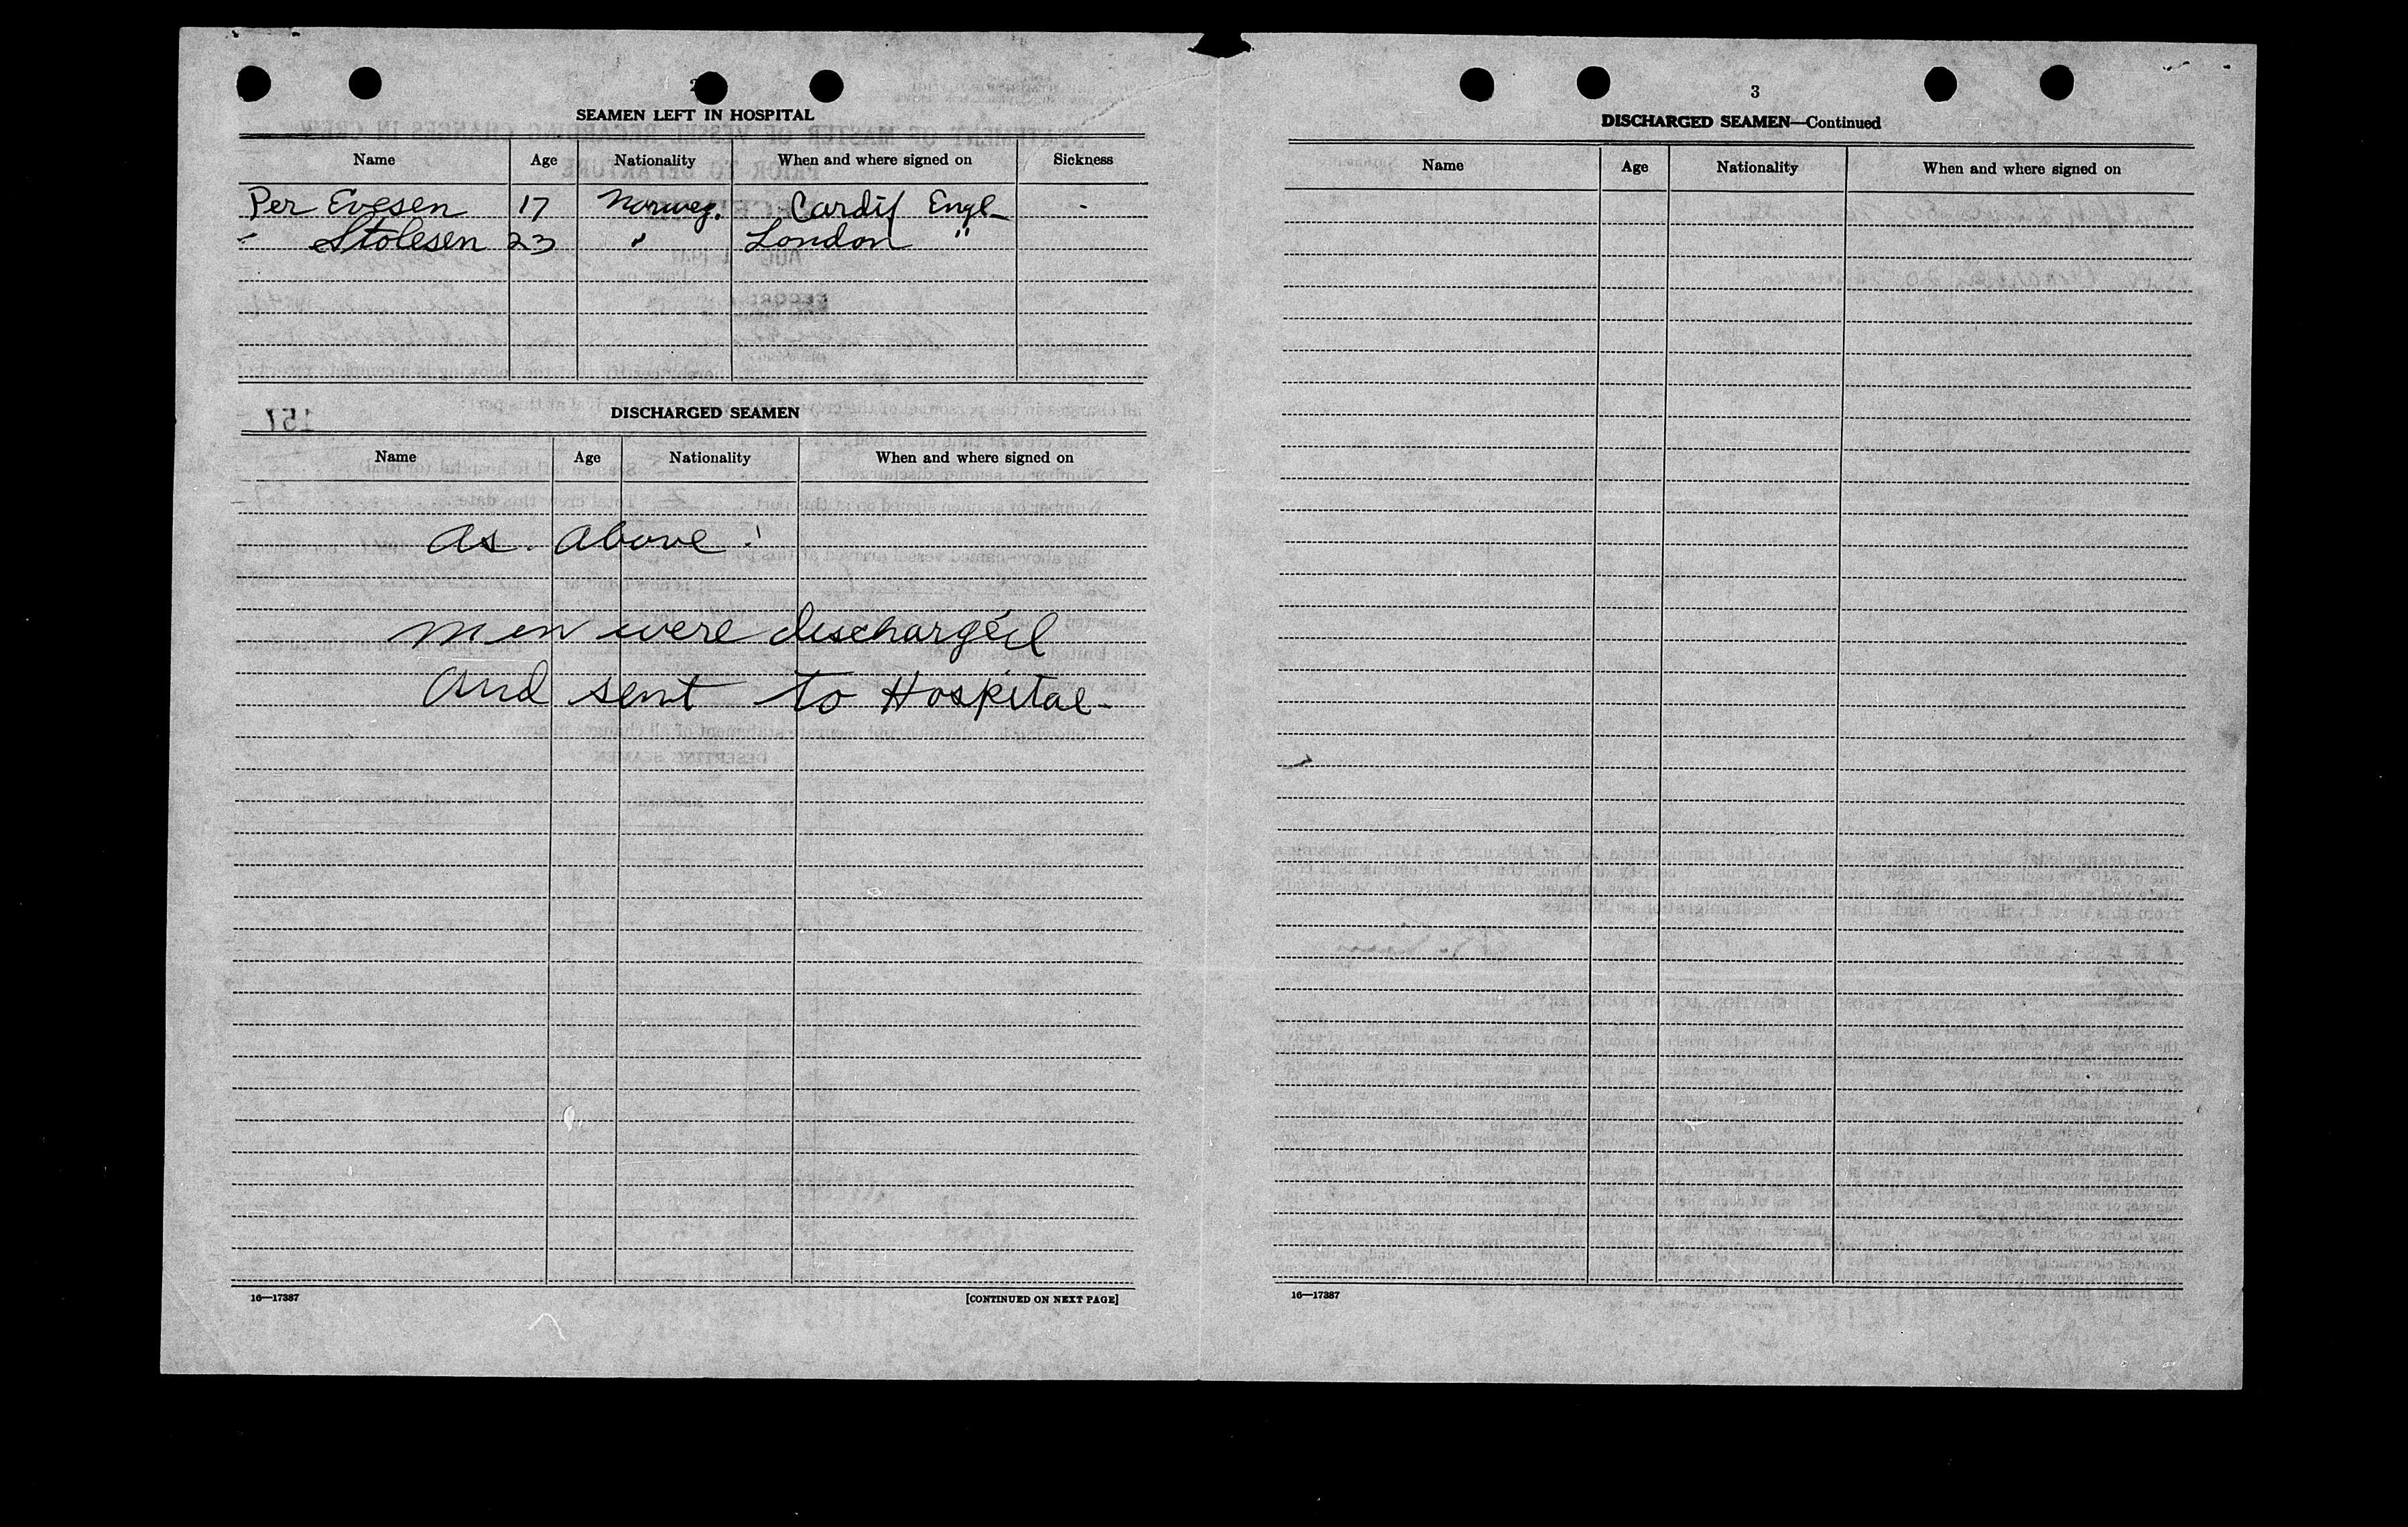 2
SEAMEN LEFT IN HOSPITAL
Name Age Nationality When and where signed on Sickness
Per Evesen 17 Norweg. Cardif Engl -
" Stolesen 23 " London "
DISCHARGED SEAMEN
Name Age Nationality When and where signed on
As above:
men were discharged
and sent to Hospital-
16—17387 [CONTINUED ON NEXT PAGE]
3
DISCHARGED SEAMEN—Continued
Name Age Nationality When and where signed on
16—17387